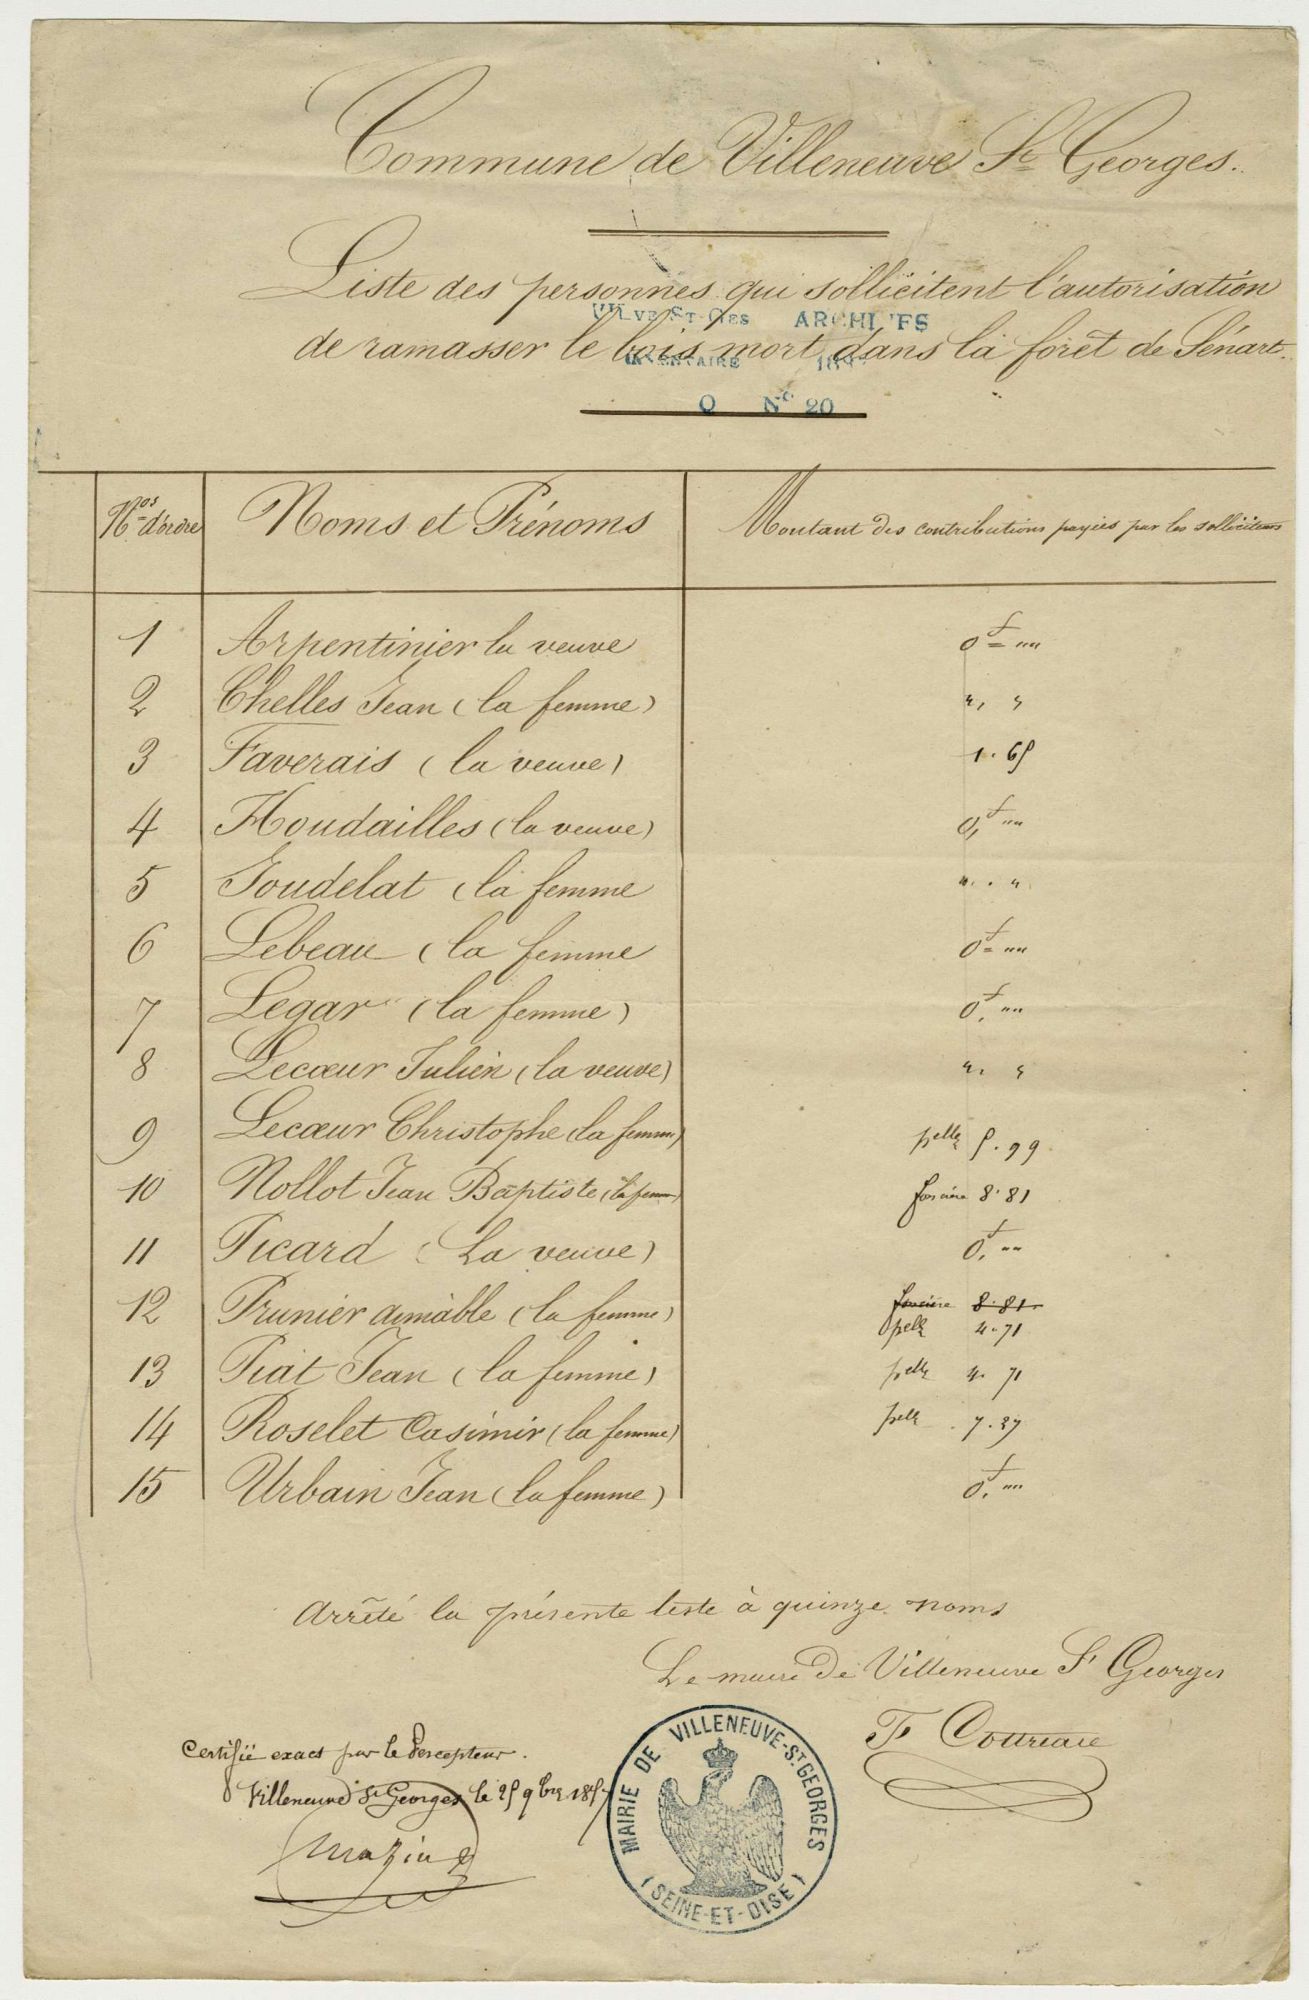 Commune de Villeneuve St Georges.
Liste des personnes qui sollicitent l'autorisation
VILVE-ST-GES ARCHIVES
de ramasser le bois mort dans la forêt de Sénart.
INVENTAIRE
O No 20
Nos d'ordre Noms et Prénoms Montant des contributions payées par les solliciteurs
1 Arpentinier la veuve 0f= ""
2 Chelles Jean (la femme) ", "
3 Faverais (la veuve) 1.65
4 Houdailles (la veuve) 0,f ""
5 Joudelat (la femme ". . "
6 Lebeau (la femme 0f= ""
7 Legar (la femme) 0.f ""
8 Lecœur Julien (la veuve) ". "
9 Lecœur Christophe (la femme) pelle 5.99
10 Nollot Jean Baptiste (la femme) foncière 8.81
11 Picard (La veuve) 0.f ""
12 Prunier aimable (la femme) foncière 8.81
pelle 4.71
13 Piat Jean (la femme) pelle 4. 71
14 Roselet Casimir (la femme) pelle . 7.37
15 Urbain Jean (la femme) 0.f ""
Arrêté la présente liste à quinze noms
Le maire de Villeneuve St Georges
Certifié exact par le Percepteur.
Villeneuve St Georges le 25 9bre 1857
MAIRIE DE VILLENEUVE-ST GEORGES
(SEINE-ET-OISE)